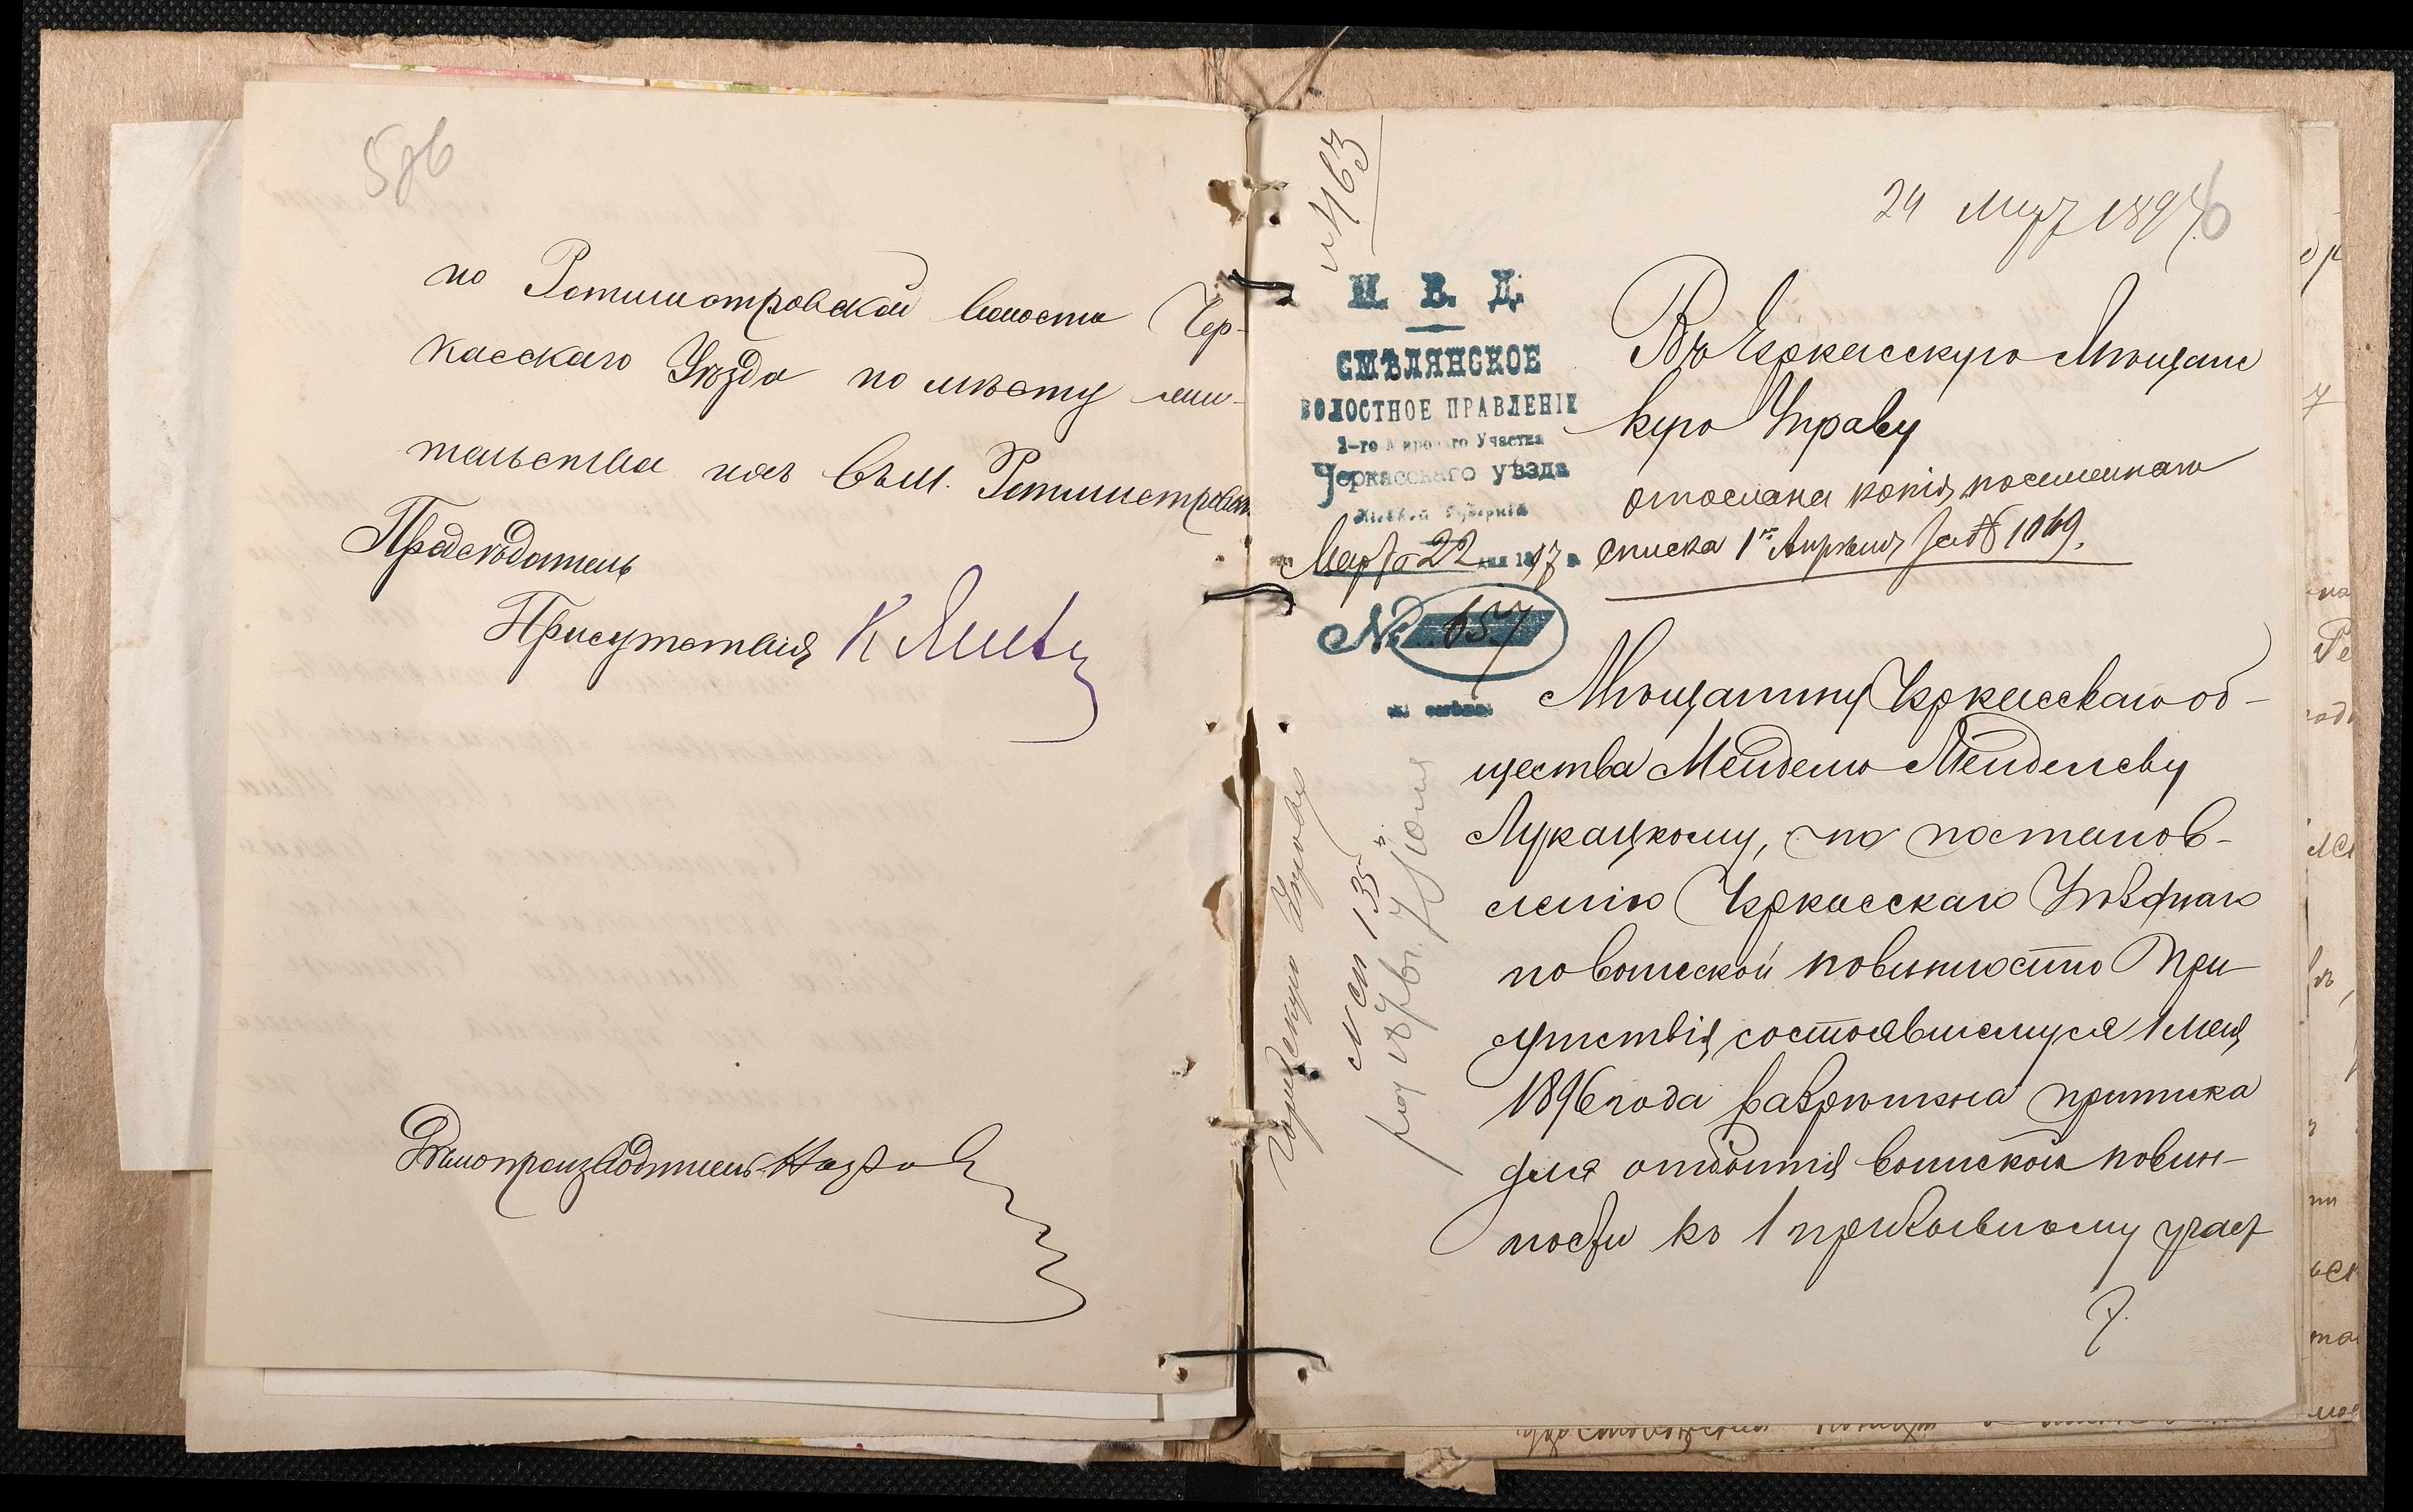 5об
по Ротмистровской волости Чер-
касскаго Уѣзда по мѣсту жи-
тельства въ м. Ротмистров
Предсѣдатель
Присутствія
Дѣлопроизводитель
№ 463
24 Мар 1897
6
М. В. Д.
СМѢЛЯНСКОЕ
ВОЛОСТНОЕ ПРАВЛЕНІЕ
2-го Мирового Участка
Черкасскаго уѣзда
Кіевской губерніи
Марта 22 дня 1897 г.
№ 657
Въ Черкасскую Мѣщанс
кую Управу
отослана копія посемейнаго
списка 1го Апрѣля за № 1069.
Мѣщанину Черкасскаго об-
щества Менделю Менделеву
Лукацкому, по постанов-
ленію Черкасскаго Уѣзднаго
по воинской повинности При
сутствія, состоявшемуся 1 мая
1896 года разрѣшена приписка
для отбытія воинской повин-
ности къ 1 призывному участ
135